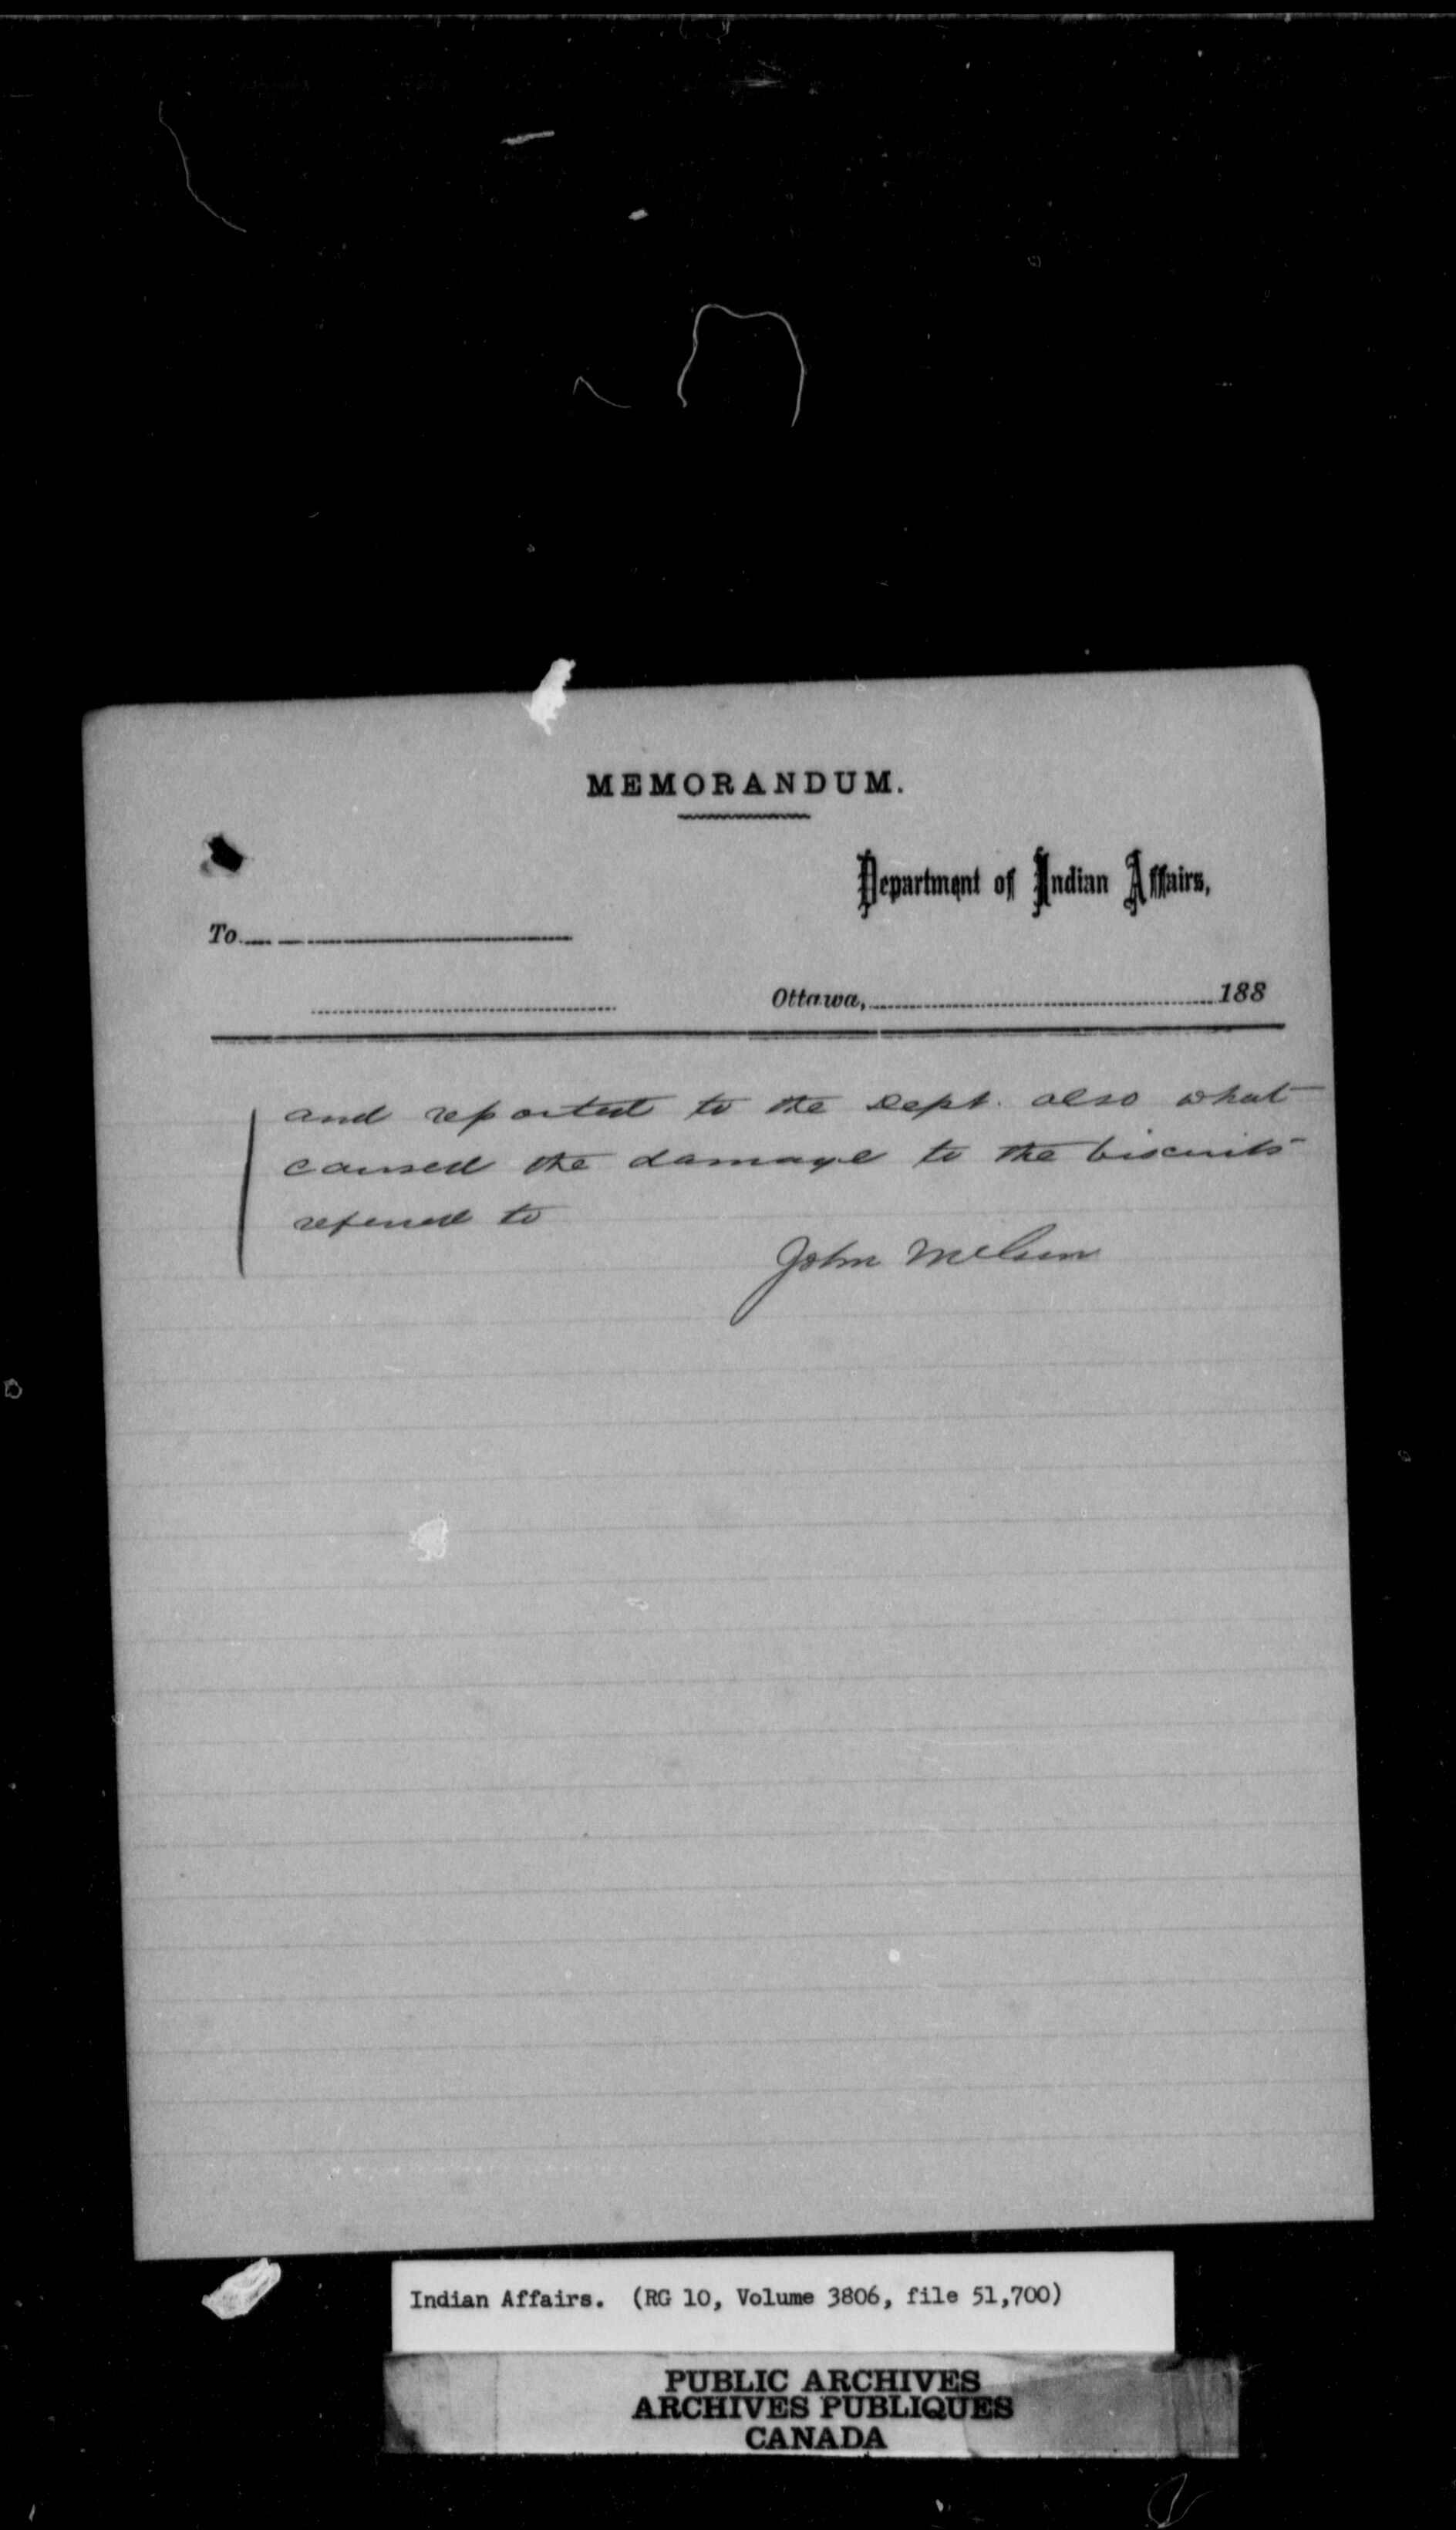 MEMORANDUM.
Department of Indian Affairs,
To
Ottawa, 188
and reported to the Dept. also what
caused the damage to the biscuits
referred to
John
Indian Affairs. (RG 10, Volume 3806, file 51,700)
PUBLIC ARCHIVES
ARCHIVES PUBLIQUES
CANADA